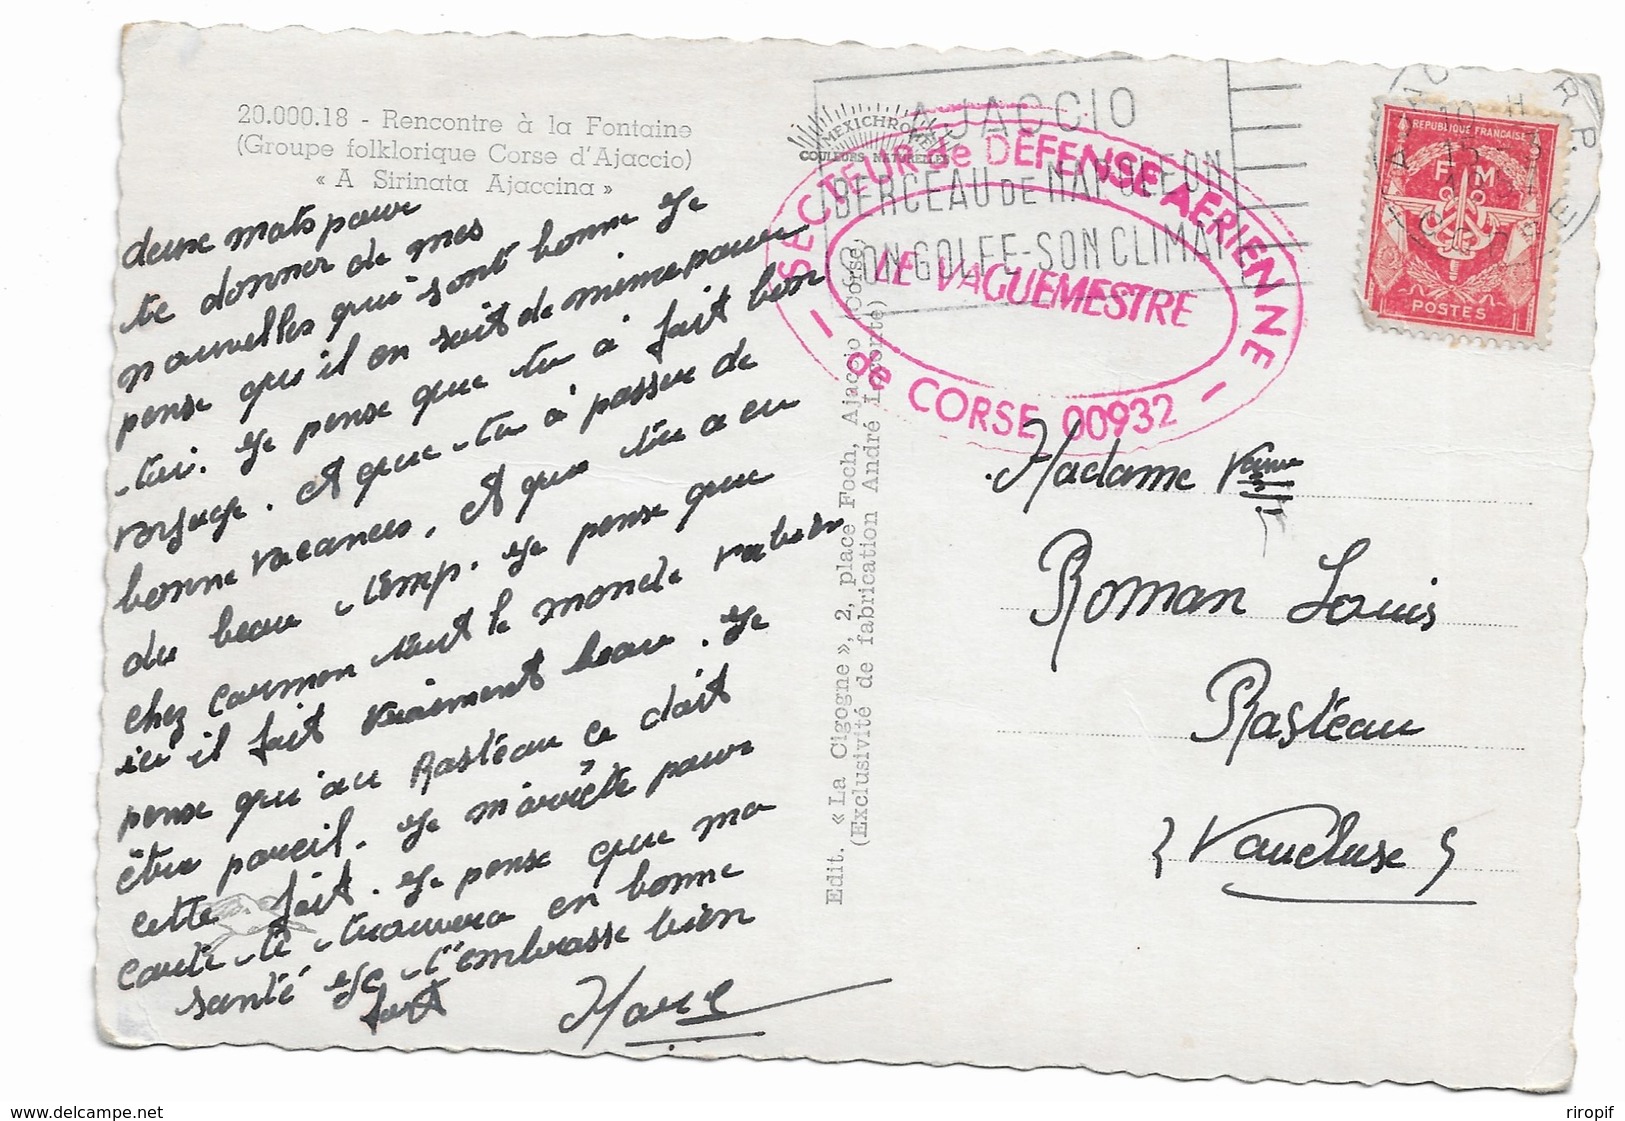 20.000.18 - Rencontre à la Fontaine
(Groupe folklorique Corse d'Ajaccio)
« A Sirinata Ajaccina »
deux mots pour
te donner de mes
nouvelles qui sont bonne Je
pense qu'il en soit de mime pour
toi. Je pense que tu à fait bon
voyage. et que tu à passer de
bonne vacances, et que tu a eu
du beau temp. Je pense que
chez Carmen tout le monde va bien
ici il fait vraiment beau. Je
pense qu'au Rasteau ce doit
être pareil. Je m'arrête pour
cette fait. Je pense que ma
carte te trouvera en bonne
santé Je t'embrasse bien
fort
Marc
MEXICHROME
COULEURS NATURELLES
Edit. « La Cigogne », 2, place Foch, Ajaccio (Corse)
(Exclusivité de fabrication André Leconte)
AJACCIO
BERCEAU DE NAPOLEON
SON GOLFE-SON CLIMAT
SECTEUR de DEFENSE AERIENNE
LE VAGUEMESTRE
- de CORSE 00932 -
REPUBLIQUE FRANCAISE
F M
POSTES
Madame
Roman Louis
Rasteau
(Vaucluse)
delcampe.net
riropif